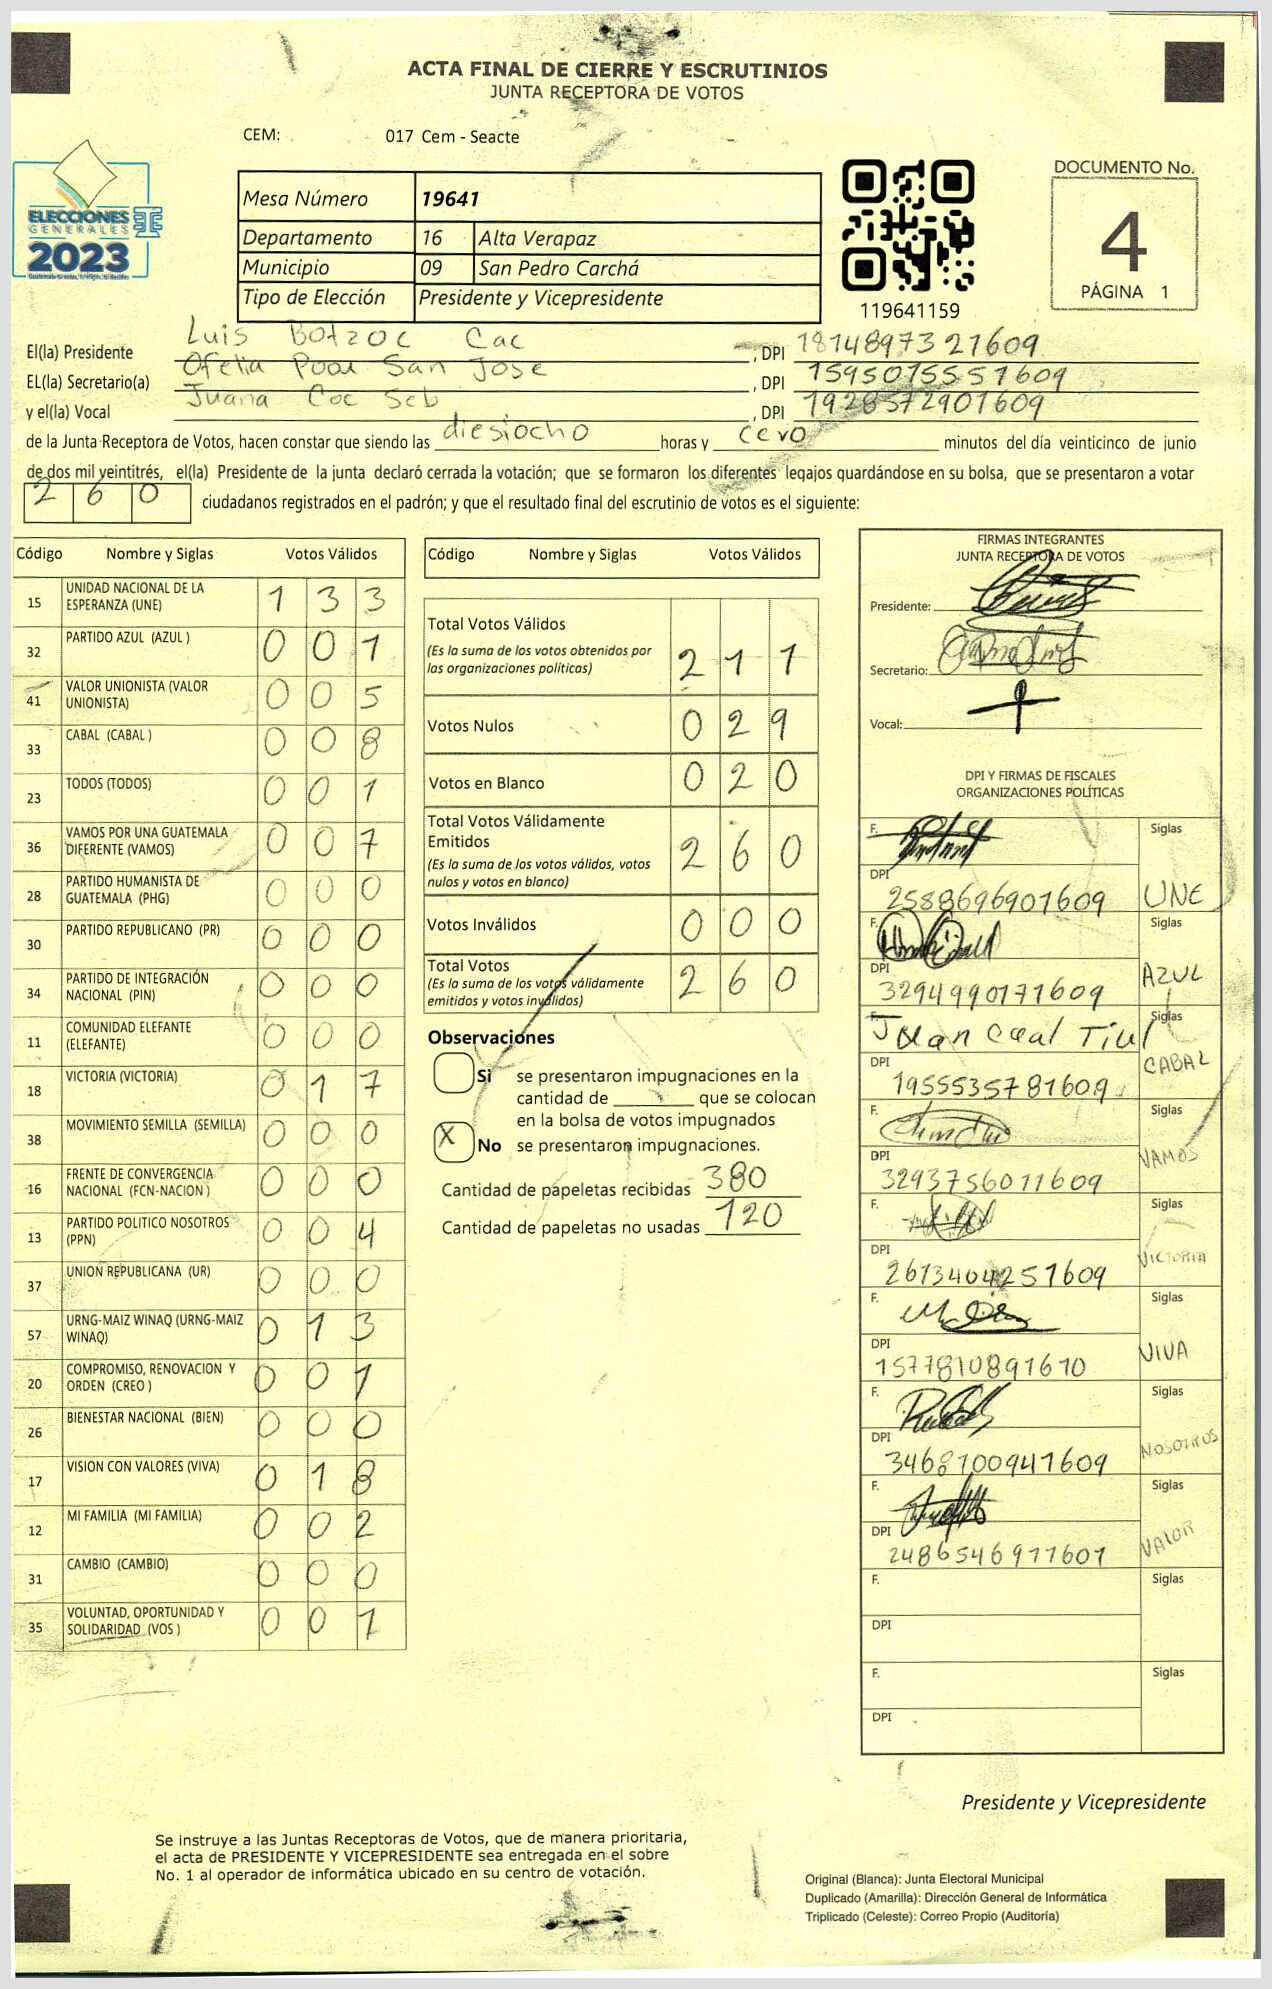 ACTA FINAL DE CIERRE Y ESCRUTINIOS
JUNTA RECEPTORA DE VOTOS
CEM: 017 Cem - Seacte
ELECCIONES
GENERALES
2023
Mesa Número 19641
Departamento 16 Alta Verapaz
Municipio 09 San Pedro Carchá
Tipo de Elección Presidente y Vicepresidente
119641159
DOCUMENTO No.
4
PÁGINA 1
El(la) Presidente Luis Botzoc Cac , DPI 1814897321609
EL(la) Secretario(a) Ofelia Poou San Jose , DPI 1595015551609
y el(la) Vocal Juana Coc Seb , DPI 1928572901609
de la Junta Receptora de Votos, hacen constar que siendo las diesiocho horas y cero minutos del día veinticinco de junio
de dos mil veintitrés, el(la) Presidente de la junta declaró cerrada la votación; que se formaron los diferentes legajos quardándose en su bolsa, que se presentaron a votar
260 ciudadanos registrados en el padrón; y que el resultado final del escrutinio de votos es el siguiente:
Código Nombre y Siglas Votos Válidos
15 UNIDAD NACIONAL DE LA ESPERANZA (UNE) 133
32 PARTIDO AZUL (AZUL ) 001
41 VALOR UNIONISTA (VALOR UNIONISTA) 005
33 CABAL (CABAL ) 008
23 TODOS (TODOS) 001
36 VAMOS POR UNA GUATEMALA DIFERENTE (VAMOS) 007
28 PARTIDO HUMANISTA DE GUATEMALA (PHG) 000
30 PARTIDO REPUBLICANO (PR) 000
34 PARTIDO DE INTEGRACIÓN NACIONAL (PIN) 000
11 COMUNIDAD ELEFANTE (ELEFANTE) 000
18 VICTORIA (VICTORIA) 017
38 MOVIMIENTO SEMILLA (SEMILLA) 000
16 FRENTE DE CONVERGENCIA NACIONAL (FCN-NACION ) 000
13 PARTIDO POLITICO NOSOTROS (PPN) 004
37 UNION REPUBLICANA (UR) 000
57 URNG-MAIZ WINAQ (URNG-MAIZ WINAQ) 013
20 COMPROMISO, RENOVACION Y ORDEN (CREO ) 001
26 BIENESTAR NACIONAL (BIEN) 000
17 VISION CON VALORES (VIVA) 018
12 MI FAMILIA (MI FAMILIA) 002
31 CAMBIO (CAMBIO) 000
35 VOLUNTAD, OPORTUNIDAD Y SOLIDARIDAD (VOS ) 001
Código Nombre y Siglas Votos Válidos
Total Votos Válidos
(Es la suma de los votos obtenidos por las organizaciones políticas) 211
Votos Nulos 029
Votos en Blanco 020
Total Votos Válidamente Emitidos
(Es la suma de los votos válidos, votos nulos y votos en blanco) 260
Votos Inválidos 000
Total Votos
(Es la suma de los votos válidamente emitidos y votos inválidos) 260
Observaciones
Si se presentaron impugnaciones en la
cantidad de ________ que se colocan
en la bolsa de votos impugnados
X No se presentaron impugnaciones.
Cantidad de papeletas recibidas 380
Cantidad de papeletas no usadas 120
FIRMAS INTEGRANTES
JUNTA RECEPTORA DE VOTOS
Presidente:
Secretario:
Vocal:
DPI Y FIRMAS DE FISCALES
ORGANIZACIONES POLÍTICAS
F. Siglas
DPI 2588696901609 UNE
F. Siglas
DPI 3294990171609 AZUL
F. Juan Caal Tiul Siglas
DPI 1955535781609 CABAL
F. Siglas
DPI 3293756011609 VAMOS
F. Siglas
DPI 2613404251609 VICTORIA
F. Siglas
DPI 1577810891610 VIVA
F. Siglas
DPI 3468100941609 NOSOTROS
F. Siglas
DPI 2486546911601 VALOR
F. Siglas
DPI
F. Siglas
DPI
Presidente y Vicepresidente
Se instruye a las Juntas Receptoras de Votos, que de manera prioritaria,
el acta de PRESIDENTE Y VICEPRESIDENTE sea entregada en el sobre
No. 1 al operador de informática ubicado en su centro de votación.
Original (Blanca): Junta Electoral Municipal
Duplicado (Amarilla): Dirección General de Informática
Triplicado (Celeste): Correo Propio (Auditoría)